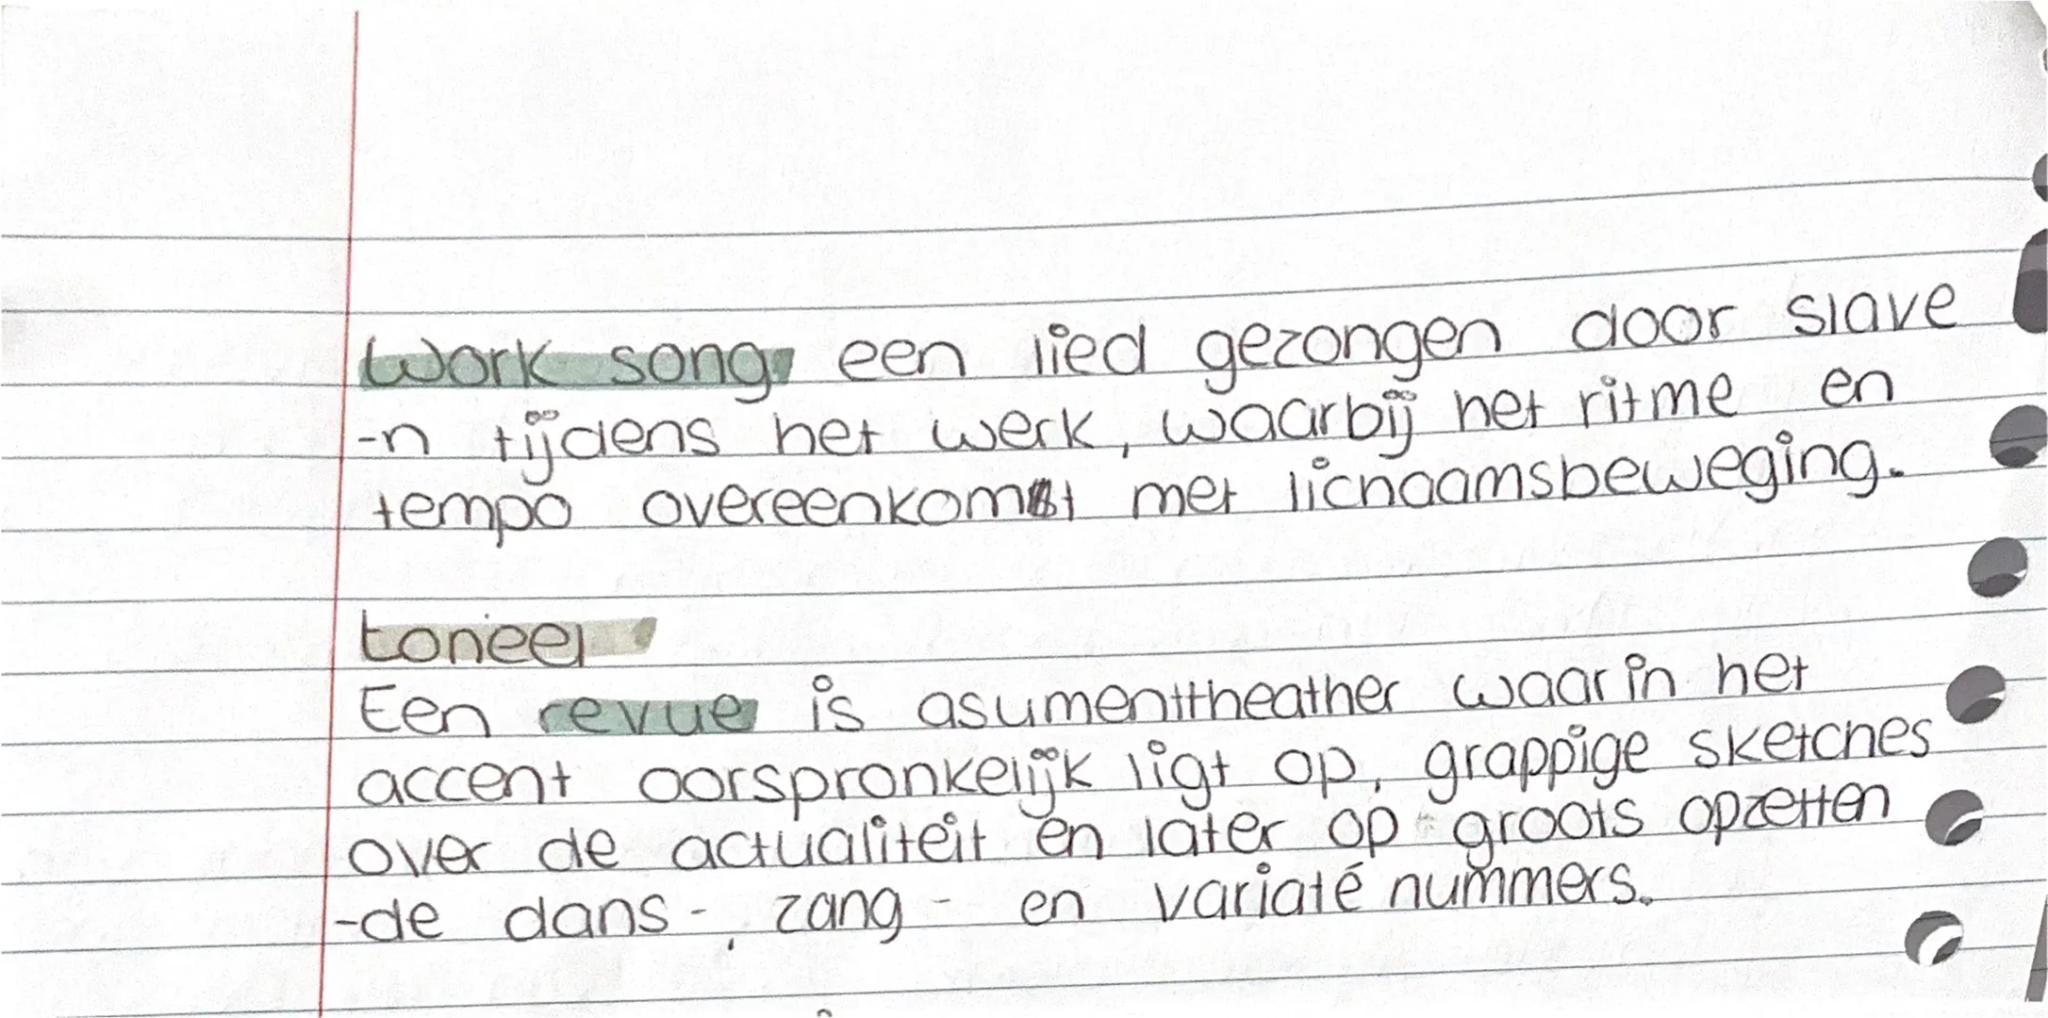 Work song een lied gezongen door slave
-n tijdens het werk, waarbij het ritme en
tempo overeenkomt met lichaamsbeweging.
toneel
Een revue is asumenttheather waarin het
accent oorspronkelijk ligt op, grappige sketches
over de actualiteit en later op groots opzetten
-de dans-, zang- en variaté nummers.